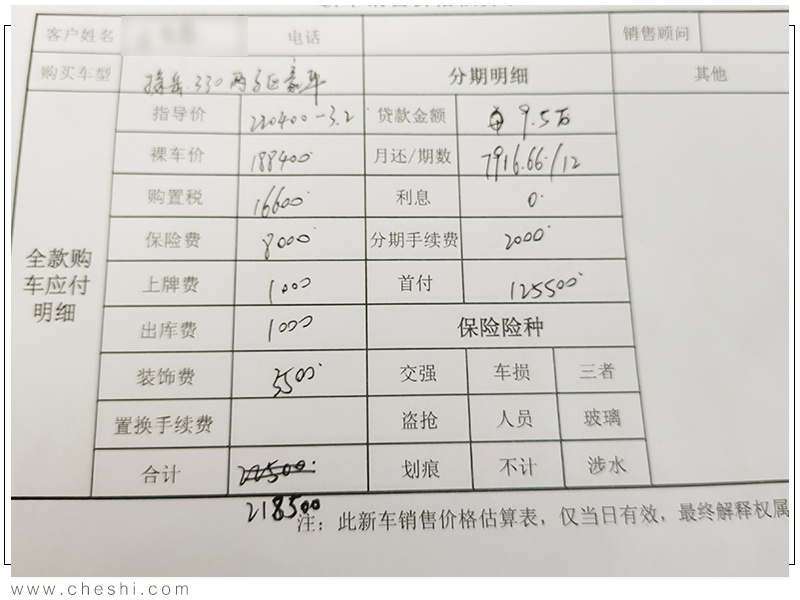 客户姓名 电话 销售顾问
购买车型 探岳 330 两驱豪华 分期明细 其他
指导价 220400-3.2 贷款金额 9.5万
裸车价 188400 月还/期数 7916.66/12
购置税 16600 利息 0
保险费 8000 分期手续费 2000
全款购
车应付
明细
上牌费 1000 首付 125500
出库费 1000 保险险种
装饰费 3500 交强 车损 三者
置换手续费 盗抢 人员 玻璃
合计 22500 划痕 不计 涉水
218500
注：此新车销售价格估算表，仅当日有效，最终解释权属
www.cheshi.com